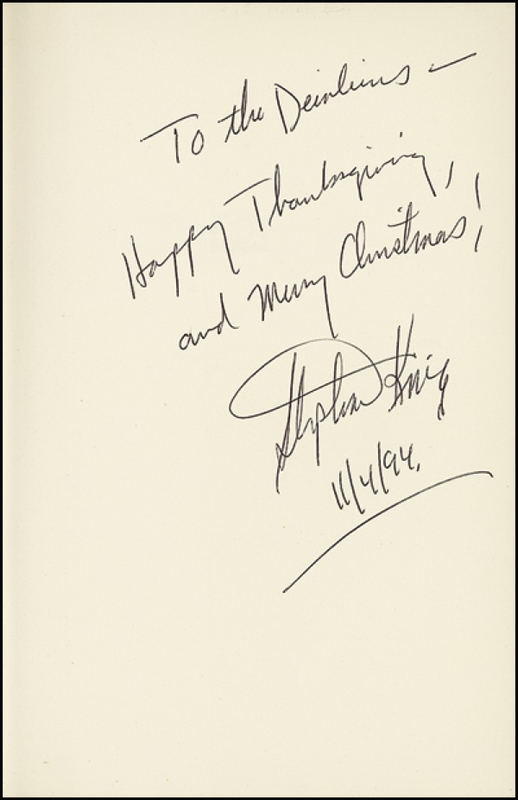 To the Deinleins —
Happy Thanksgiving,
and Merry Christmas!
Stephen King
11/4/94.